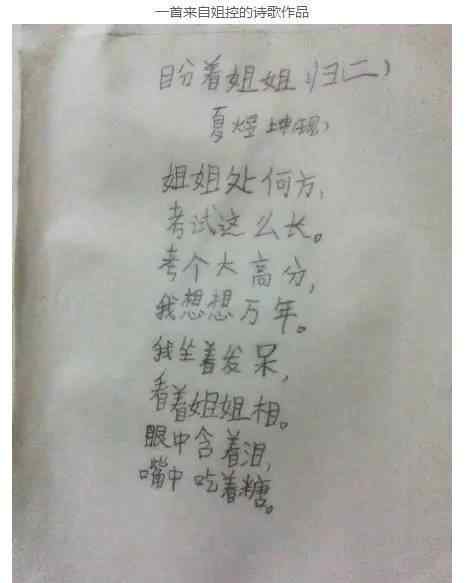 一首来自姐控的诗歌作品
盼着姐姐归(二)
夏煜
姐姐处何方,
考试这么长。
考个大高分,
我想想万年。
我坐着发呆,
看着姐姐相。
眼中含着泪,
嘴中吃着糖。